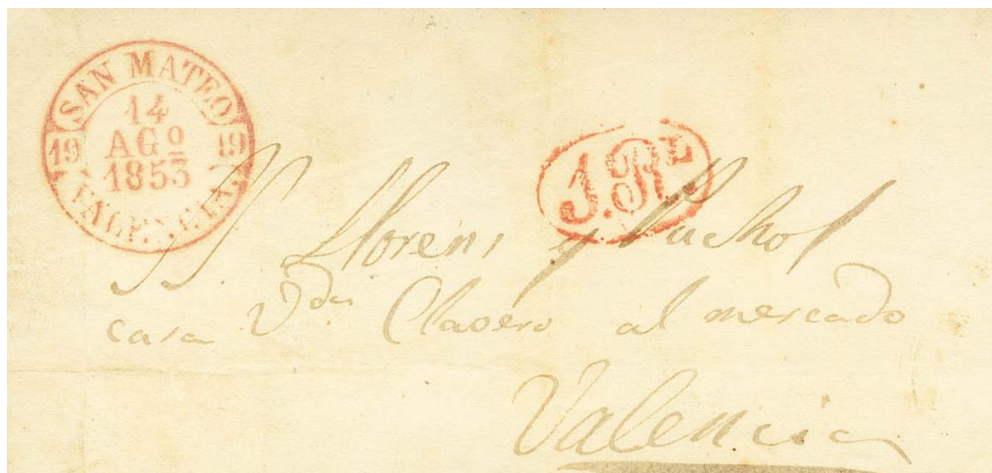 SAN MATEO
14
AGº
1853
19 19
VALENCIA.
1.Rˡ
SS Llorens y Puchol
casa Vda Clavero al mercado
Valencia